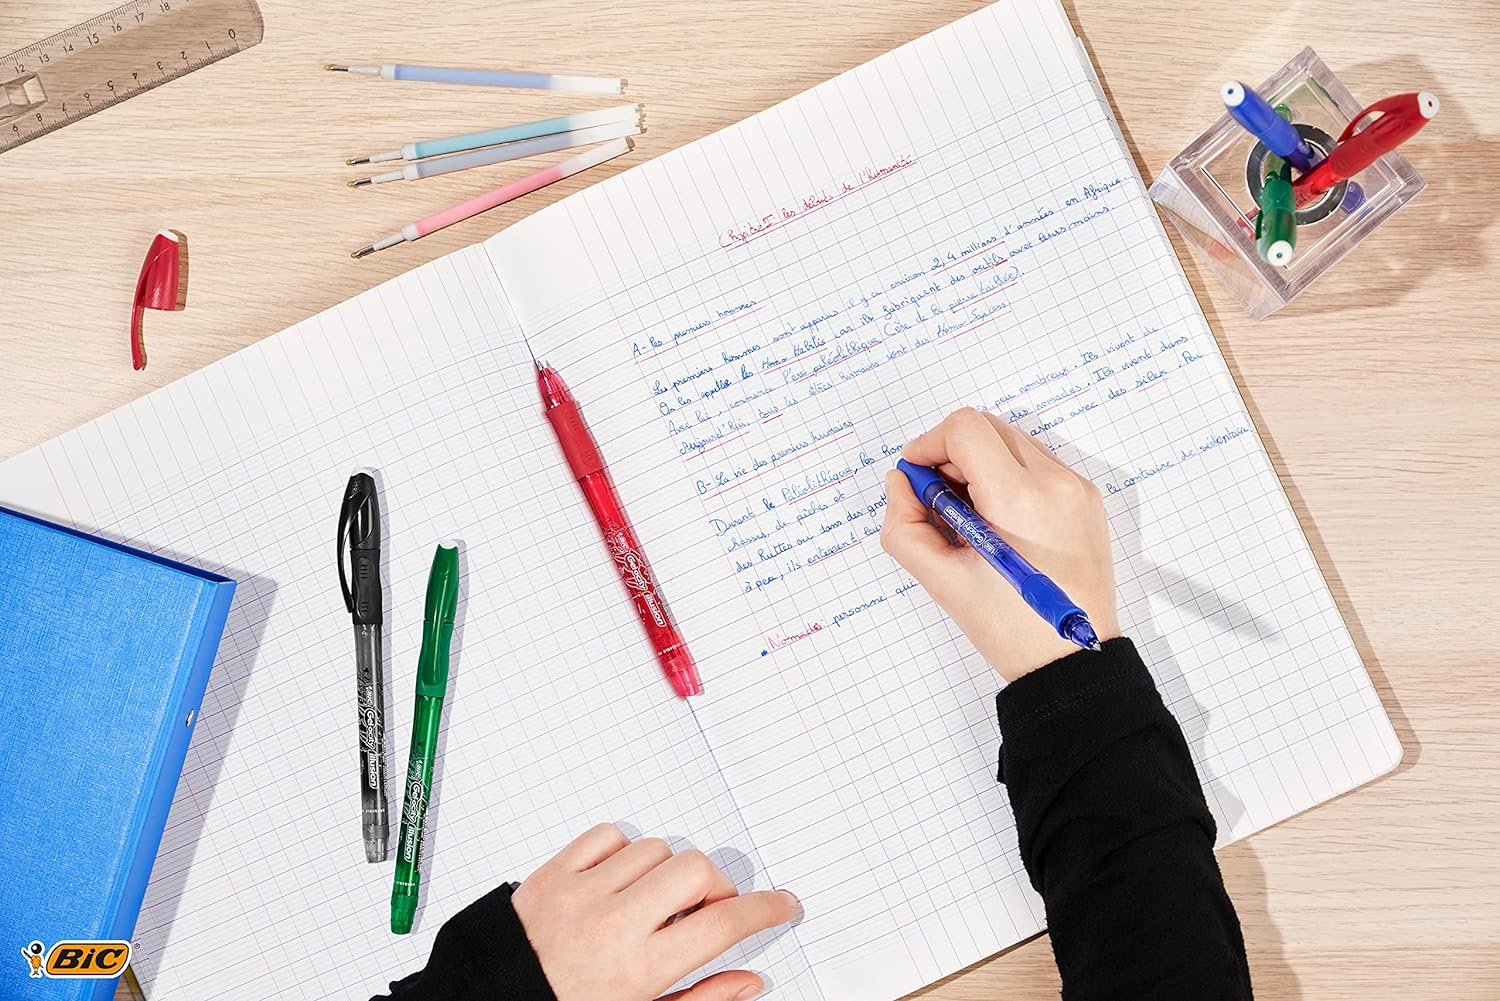 Chapitre I: les débuts de l'humanité
A- les premiers hommes
Les premiers hommes sont apparus il y a environ 2,4 millions d'années en Afrique.
On les appelle les Homo Habilis car ils fabriquent des outils avec leurs mains.
Avec lui, commence l'ère paléolithique (ère de la pierre taillée).
Aujourd'hui, tous les êtres humains sont des Homo Sapiens.
B- La vie des premiers humains
Durant le Paléolithique, les hom peu nombreux. Ils vivent de
chasses, de pêches et des nomades. Ils vivent dans
des huttes ou dans des grot armes avec des silex. Peu
à peu, ils enterrent leurs
Nomade: personne qui le contraire de sédentaire
BIC Gel-ocity illusion
BIC Gel-ocity illusion
BIC Gel-ocity illusion
BIC Gel-ocity illusion
0 1 2 3 5 6 7 8 9
12 13 14 15 16 17 18
BiC